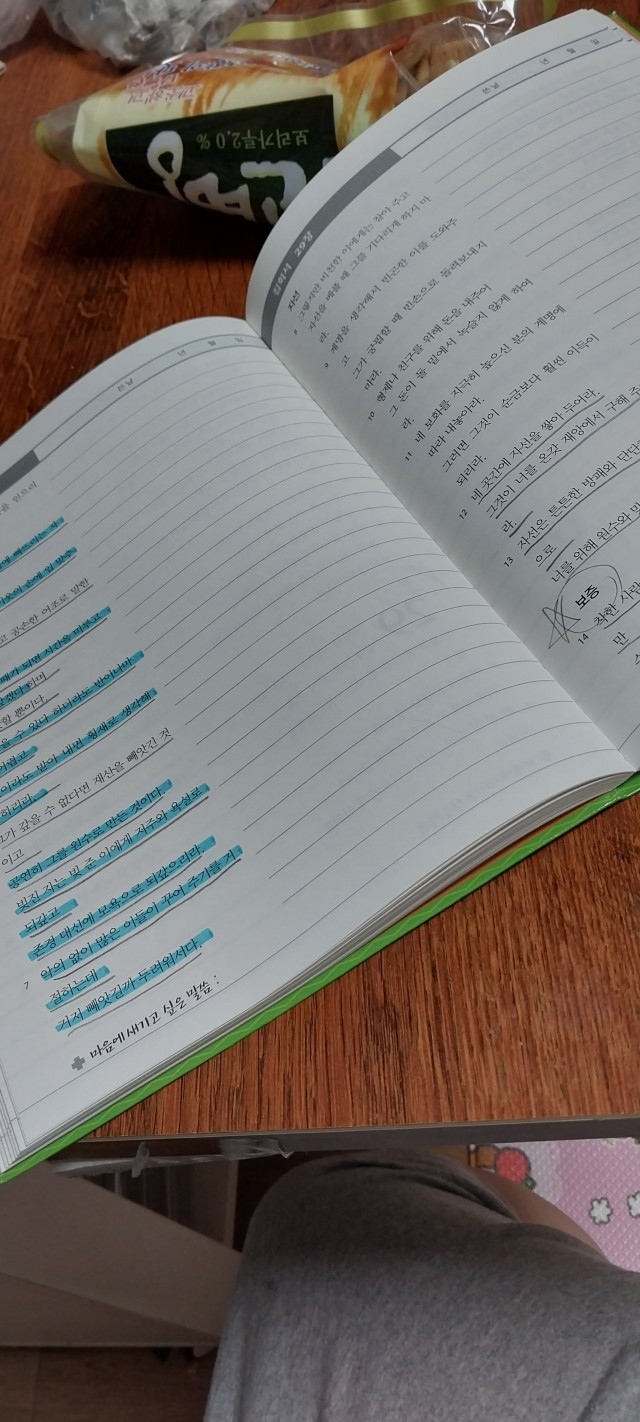 보리가루2.0%
말씀
년 월 일
을 얻으리
고 공손한 어조로 말한
때가 되면 시간을 미루고
하겠다 하며
할 뿐이다.
을 수 있다 하더라도 반이나마
이라도 받아 내면 횡재로 생각해
하리라.
그가 갚을 수 없다면 재산을 빼앗긴 것
이고
공연히 그를 원수로 만든 것이다.
빚진 자는 빚 준 이에게 저주와 욕설로
되갚고
존경 대신에 모욕으로 되갚으리라.
7 악의 없이 많은 이들이 꾸어 주기를 거
절하는데
거저 빼앗길까 두려워서다.
마음에 새기고 싶은 말씀 :
년 월 일
집회서 29장
자선
8 그렇지만 비천한 이에게는 참아 주고
자선을 베풀 때 그를 기다리게 하지 마
라.
9 계명을 생각해서 빈곤한 이를 도와주
고
그가 궁핍할 때 빈손으로 돌려보내지
마라.
10 형제나 친구를 위해 돈을 내주어
그 돈이 돌 밑에서 녹슬지 않게 하여
라.
11 네 보화를 지극히 높으신 분의 계명에
따라 내놓아라.
그러면 그것이 순금보다 훨씬 이득이
되리라.
12 네 곳간에 자선을 쌓아 두어라.
그것이 너를 온갖 재앙에서 구해 주
라.
13 자선은 튼튼한 방패와 단단
으로
너를 위해 원수와 맞
보증
14 착한 사람
만